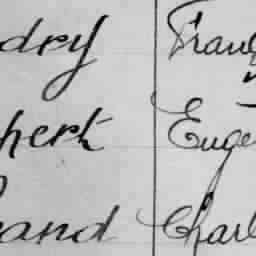 dry Franç
hert Euge
and Charl